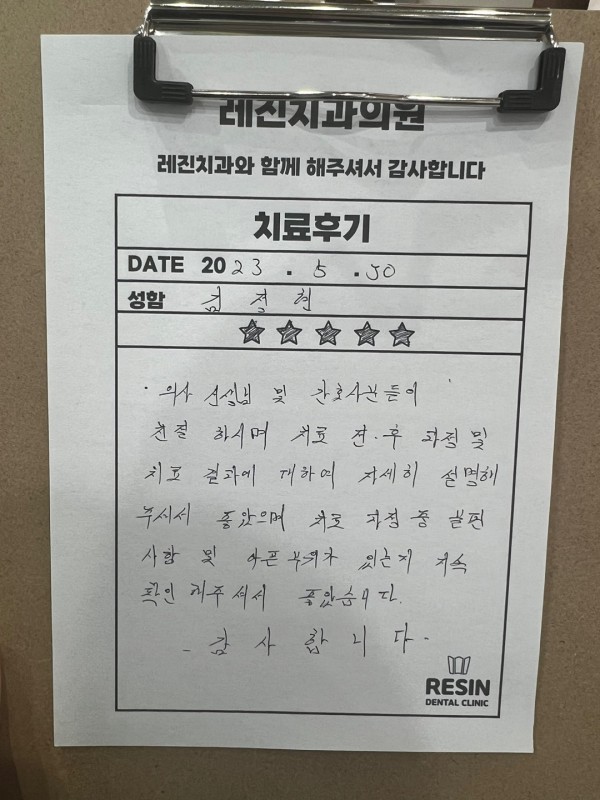 레진치과의원
레진치과와 함께 해주셔서 감사합니다
치료후기
DATE 2023 . 5 . 30
성함 김 정 현
· 의사 선생님 및 간호사분들이
친절 하시며 치료 전·후 과정 및
치료 결과에 대하여 자세히 설명해
주셔서 좋았으며 치료 과정 중 불편
사항 및 아픈 부위가 있는지 지속
확인 해주셔서 좋았습니다.
- 감 사 합 니 다 -
RESIN
DENTAL CLINIC